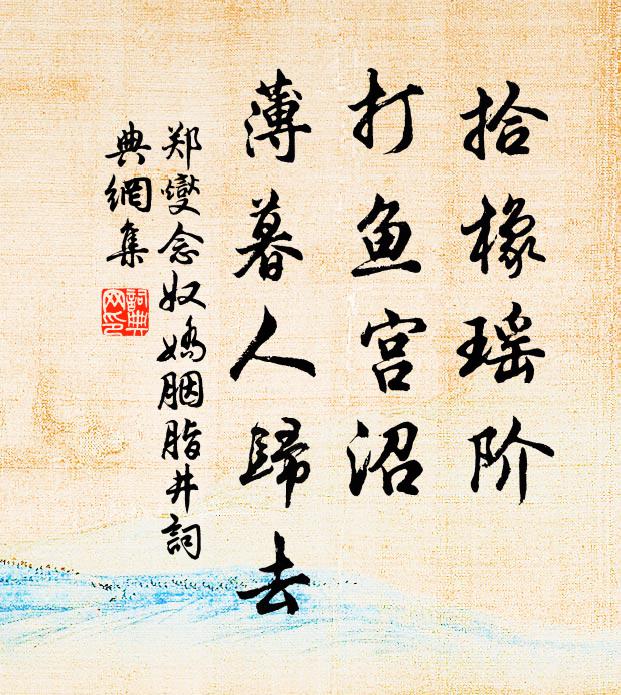 拾橡瑶阶
打鱼宫沼
薄暮人歸去
郑燮念奴娇胭脂井詞
典網集
詞典
网印